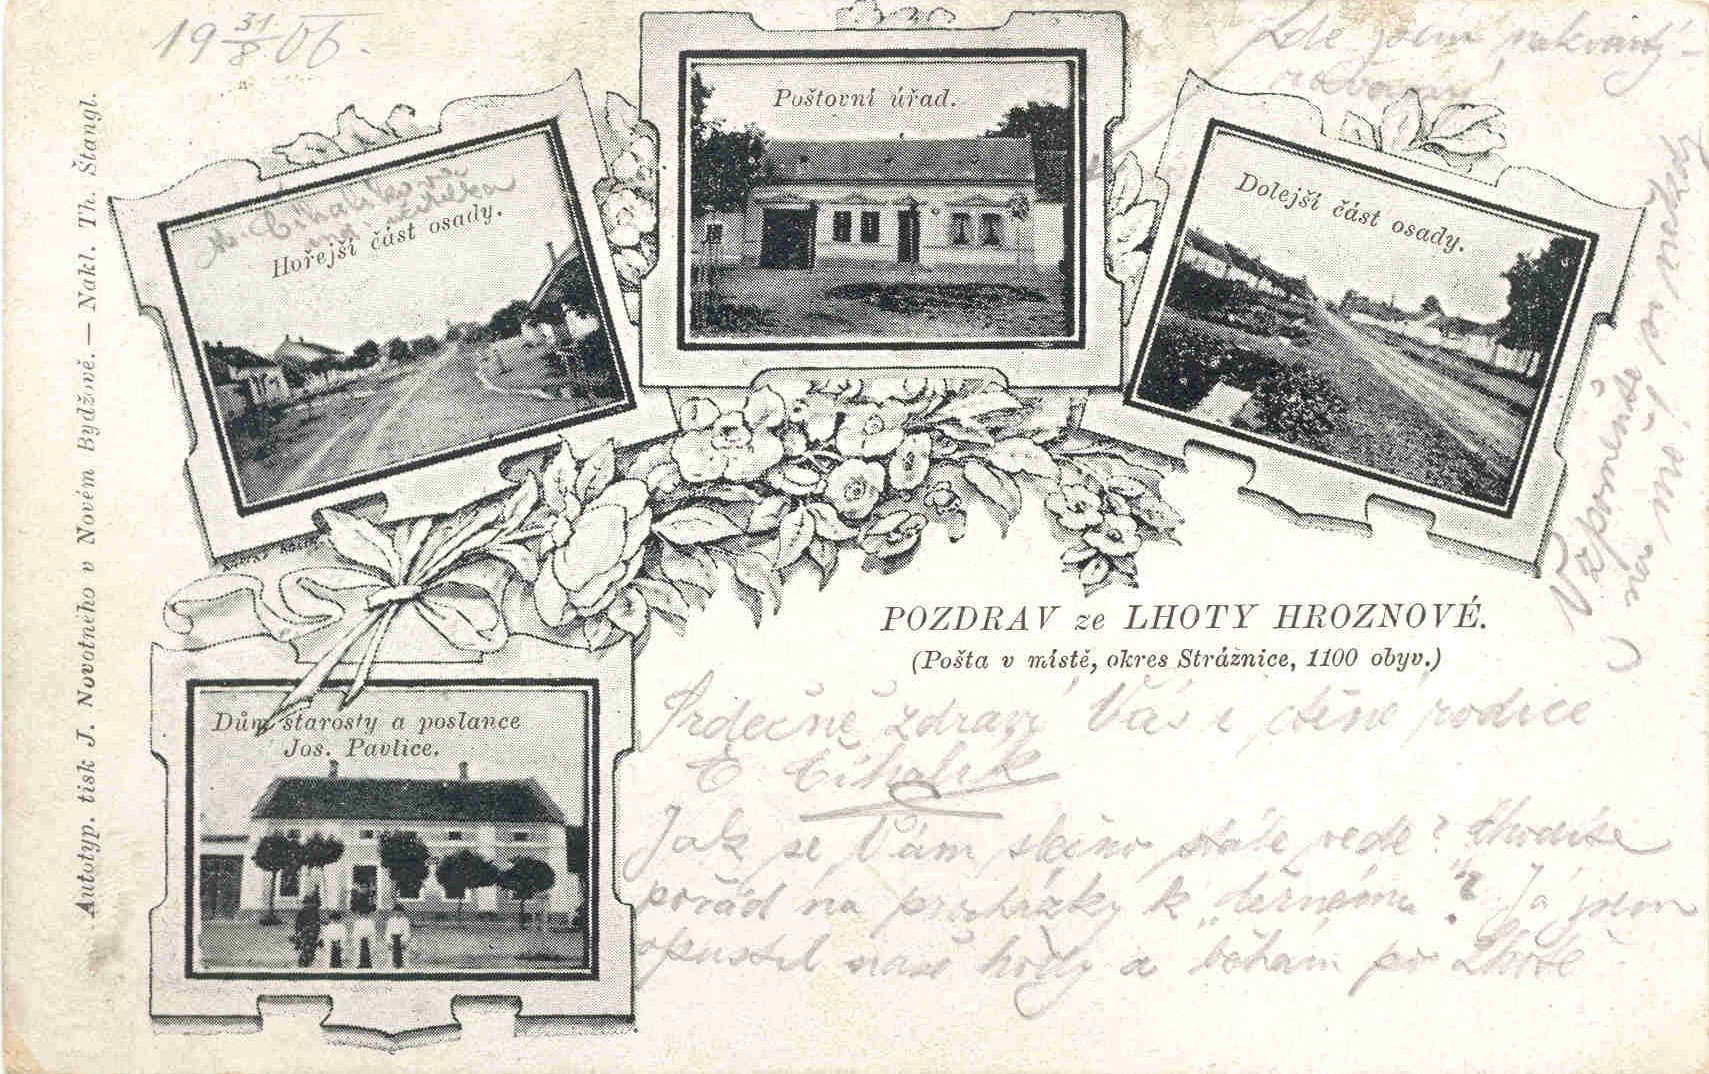 19 31/8 06.
Zde jsem
Poštovní úřad.
Hořejší část osady.
Dolejší část osady.
Autotyp. tisk J. Novotného v Novém Bydžově. — Nakl. Th. Štangl.
POZDRAV ze LHOTY HROZNOVÉ.
(Pošta v místě, okres Strážnice, 1100 obyv.)
Dům starosty a poslance
Jos. Pavlice.
Srdečně zdraví Vás i ctěné rodiče
Jak se Vám slečno stále vede? Chodíte
pořád na procházky k "? Já jsem
opustil naše hody a běhám po Lhotě
Vzpomenete
na